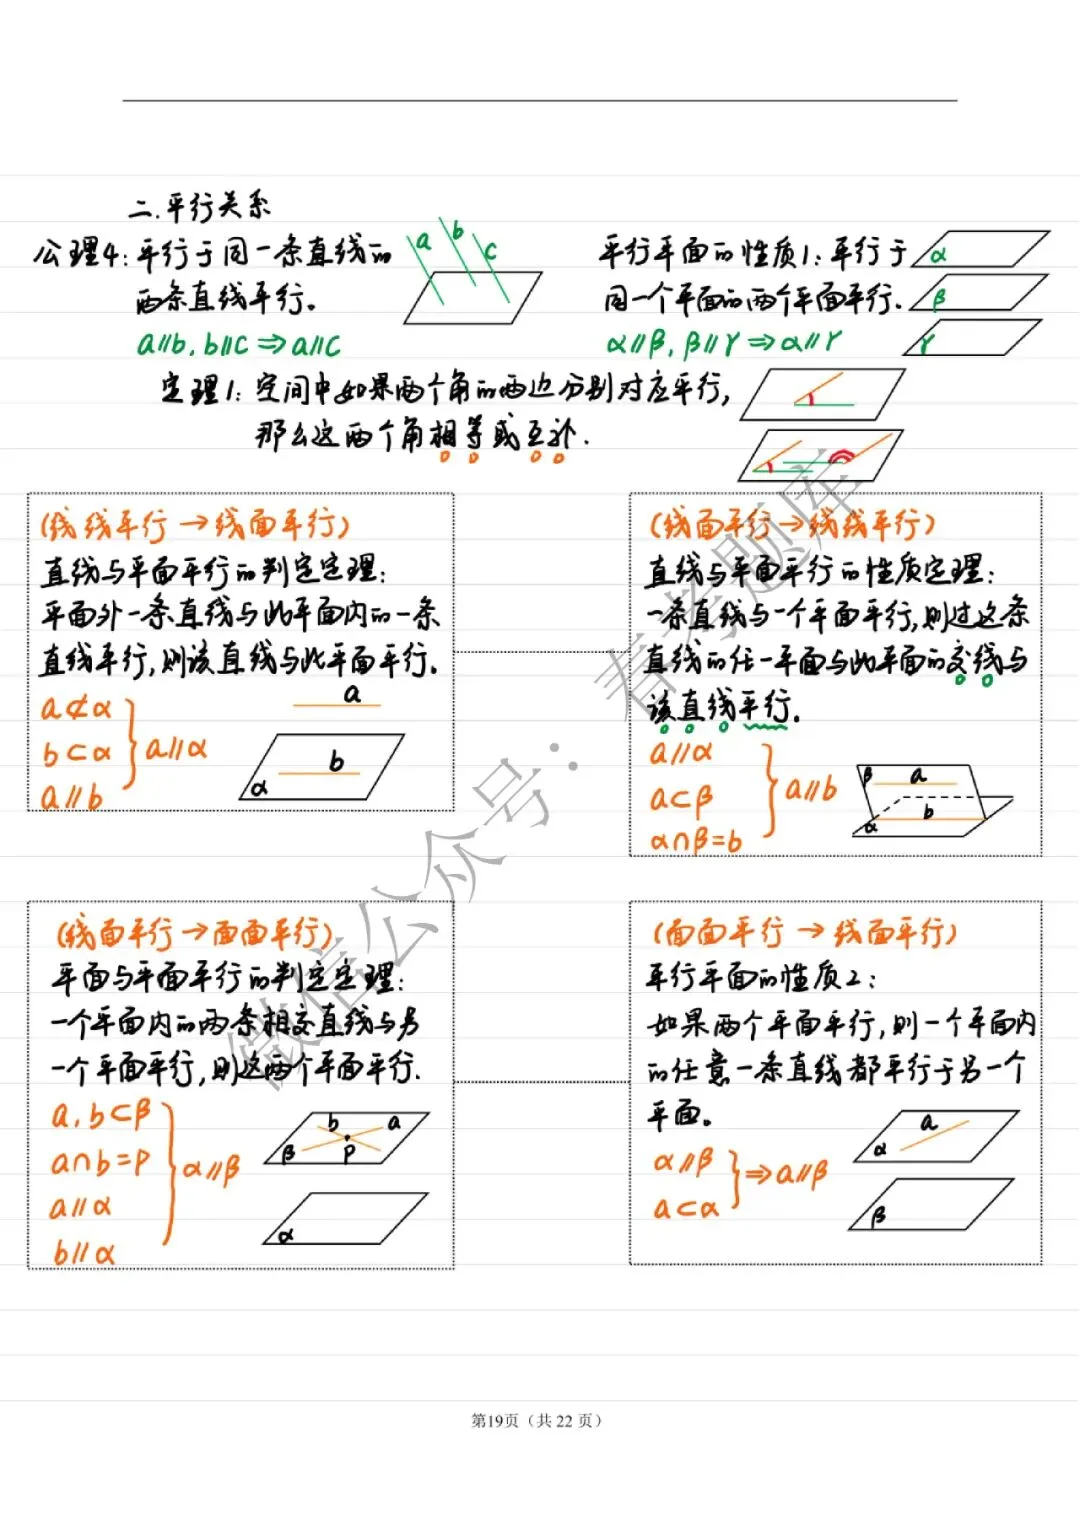 二.平行关系
公理4:平行于同一条直线的
两条直线平行。
a∥b, b∥c⇒a∥c
a b c
平行平面的性质1:平行于
同一个平面的两个平面平行.
α∥β, β∥γ⇒α∥γ
α
β
γ
定理1:空间中如果两个角的两边分别对应平行,
那么这两个角相等或互补.
(线线平行→线面平行)
直线与平面平行的判定定理:
平面外一条直线与此平面内的一条
直线平行,则该直线与此平面平行.
a⊄α
b⊂α
a∥b
a∥α
a
b
α
(线面平行→线线平行)
直线与平面平行的性质定理:
一条直线与一个平面平行,则过这条
直线的任一平面与此平面的交线与
该直线平行.
a∥α
a⊂β
α∩β=b
a∥b
β a
α b
(线面平行→面面平行)
平面与平面平行的判定定理:
一个平面内的两条相交直线与另
一个平面平行,则这两个平面平行.
a, b⊂β
a∩b=P
a∥α
b∥α
α∥β
b a
β P
α
(面面平行→线面平行)
平行平面的性质2:
如果两个平面平行,则一个平面内
的任意一条直线都平行于另一个
平面。
α∥β
a⊂α
⇒a∥β
a
α
β
微信公众号：春考题库
第19页（共 22 页）